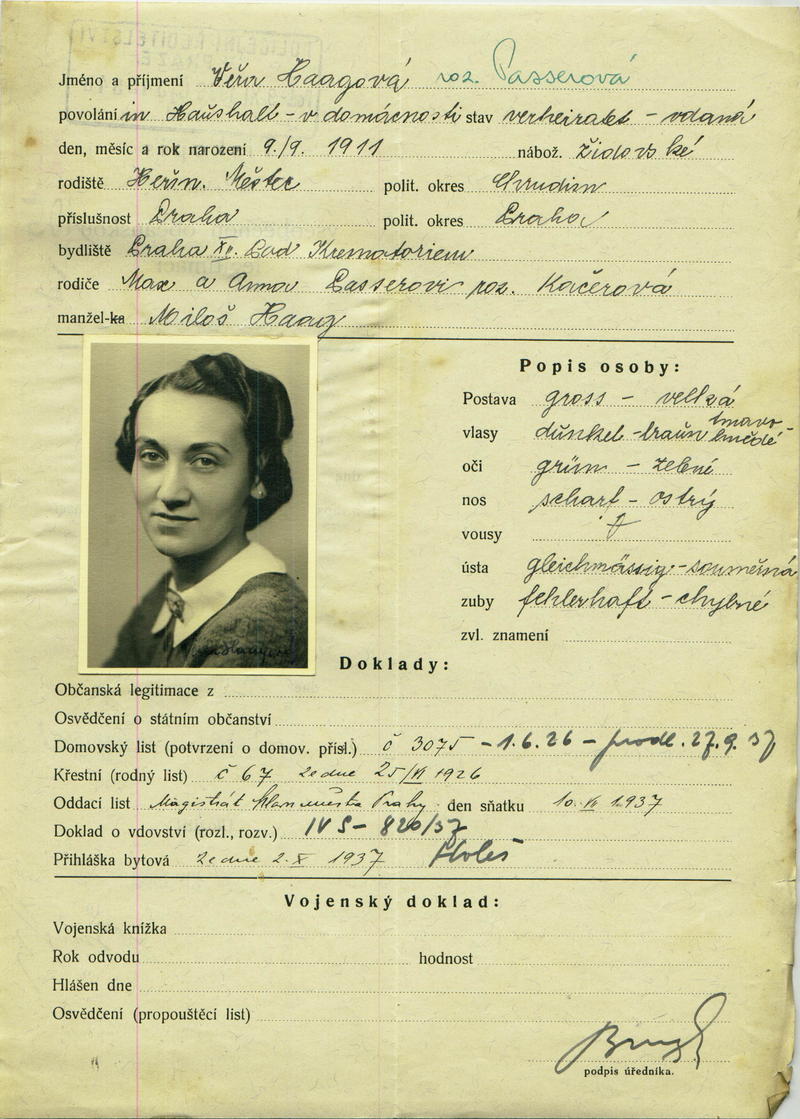 Jméno a příjmení Věra Haagová roz. Passerová
povolání in Haushalt - v domácnosti stav verheiratet - vdaná
den, měsíc a rok narození 9./9. 1911 nábož. židovské
rodiště Heřm. Městec polit. okres Chrudim
příslušnost Praha polit. okres Praha
bydliště Praha XII. Pod Krematoriem
rodiče Max a Anna Passerovi roz. Kačerová
manžel-ka Miloš Haag
Popis osoby:
Postava gross - velká
vlasy dunkel-braun tmavo-hnědé
oči grün - zelené
nos scharf - ostrý
vousy
ústa gleichmässig - souměrná
zuby fehlerhaft - chybné
zvl. znamení
Doklady:
Občanská legitimace z
Osvědčení o státním občanství
Domovský list (potvrzení o domov. přísl.) č 3075 - 1.6.26 - prodl. 27.9.37
Křestní (rodný list) č 67 ze dne 25/VI 1926
Oddací list Magistrát hlav. města Prahy den sňatku 10. 1937
Doklad o vdovství (rozl., rozv.) IV S - 820/37
Přihláška bytová ze dne 2.X 1937
Vojenský doklad:
Vojenská knížka
Rok odvodu hodnost
Hlášen dne
Osvědčení (propouštěcí list)
podpis úředníka.